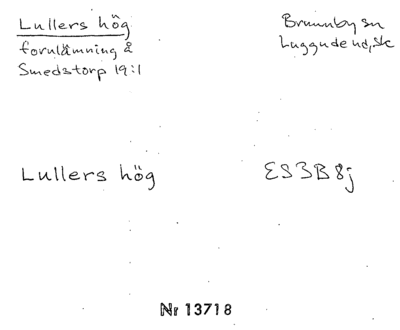 Lullers hög
fornlämning å
Smedstorp 19:1
Brunnby sn
Luggude hd, Sk
Lullers hög
ES3B8j
Nr 13718